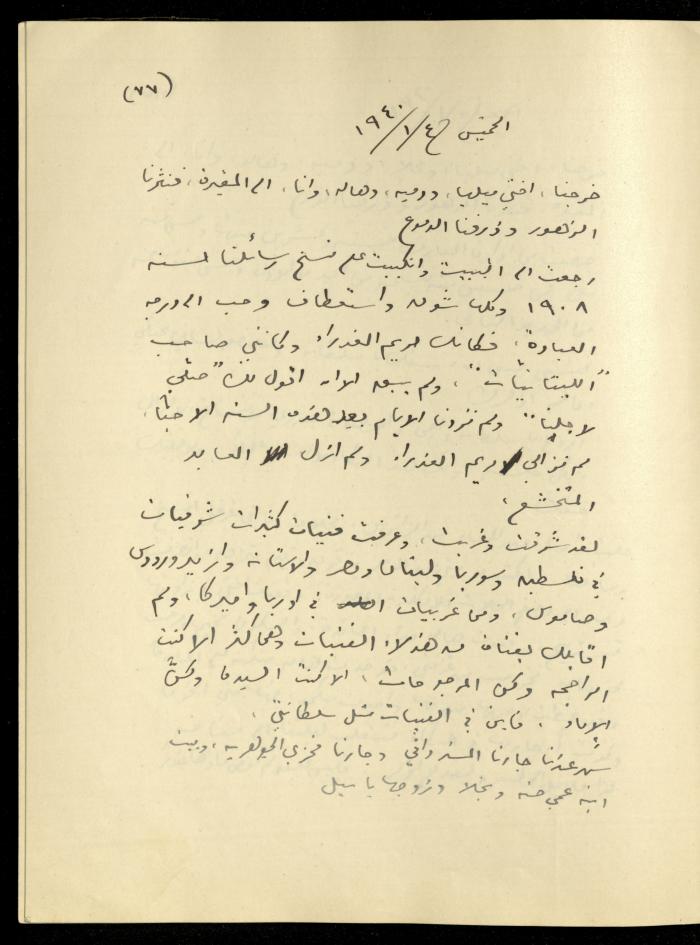 (٧٧)
الخميس في ٤/١/١٩٤٠
خرجنا، اختي ميليا، ودميه، وهاله، وانا، الى المقبرة، فنثرنا
الزهور وذرفنا الدموع
رجعت الى البيت وانكببت على نسخ رسائلنا لسنه
١٩٠٨ وكلها شوق واستعطاف وحب الى درجه
العبادة، فكانك مريم العذراء وكانني صاحب
"الليتانيات"، ولم يبق الا ان اقول لك "صلّي
لاجلنا" ولم تزدنا الايام بعد هذه السنه الا حبّا،
لم تزالي مريم العذراء ولم ازل العابد
المتخشع،
لقد شرّقت وغربت، وعرفت فتيات كثيرات شرقيات
في فلسطين وسوريا ولبنان ومصر والاستانه وازمير ورودس
وصاموس، ومن غربيات في اوربا واميركا، ولم
اقابلك بفتاة من هذلاء الفتيات وهم اكثر الا كنت
الراجحه وكن المرجوحات، الا كنت السيده وكنّ
الإماء، فاين في الفتيات مثل سلطانتي،
سهر عندنا جارنا وجارنا فخري الجوهريه، وبنت
ابنة عمي حنه ونجلا وزوجها باسيل